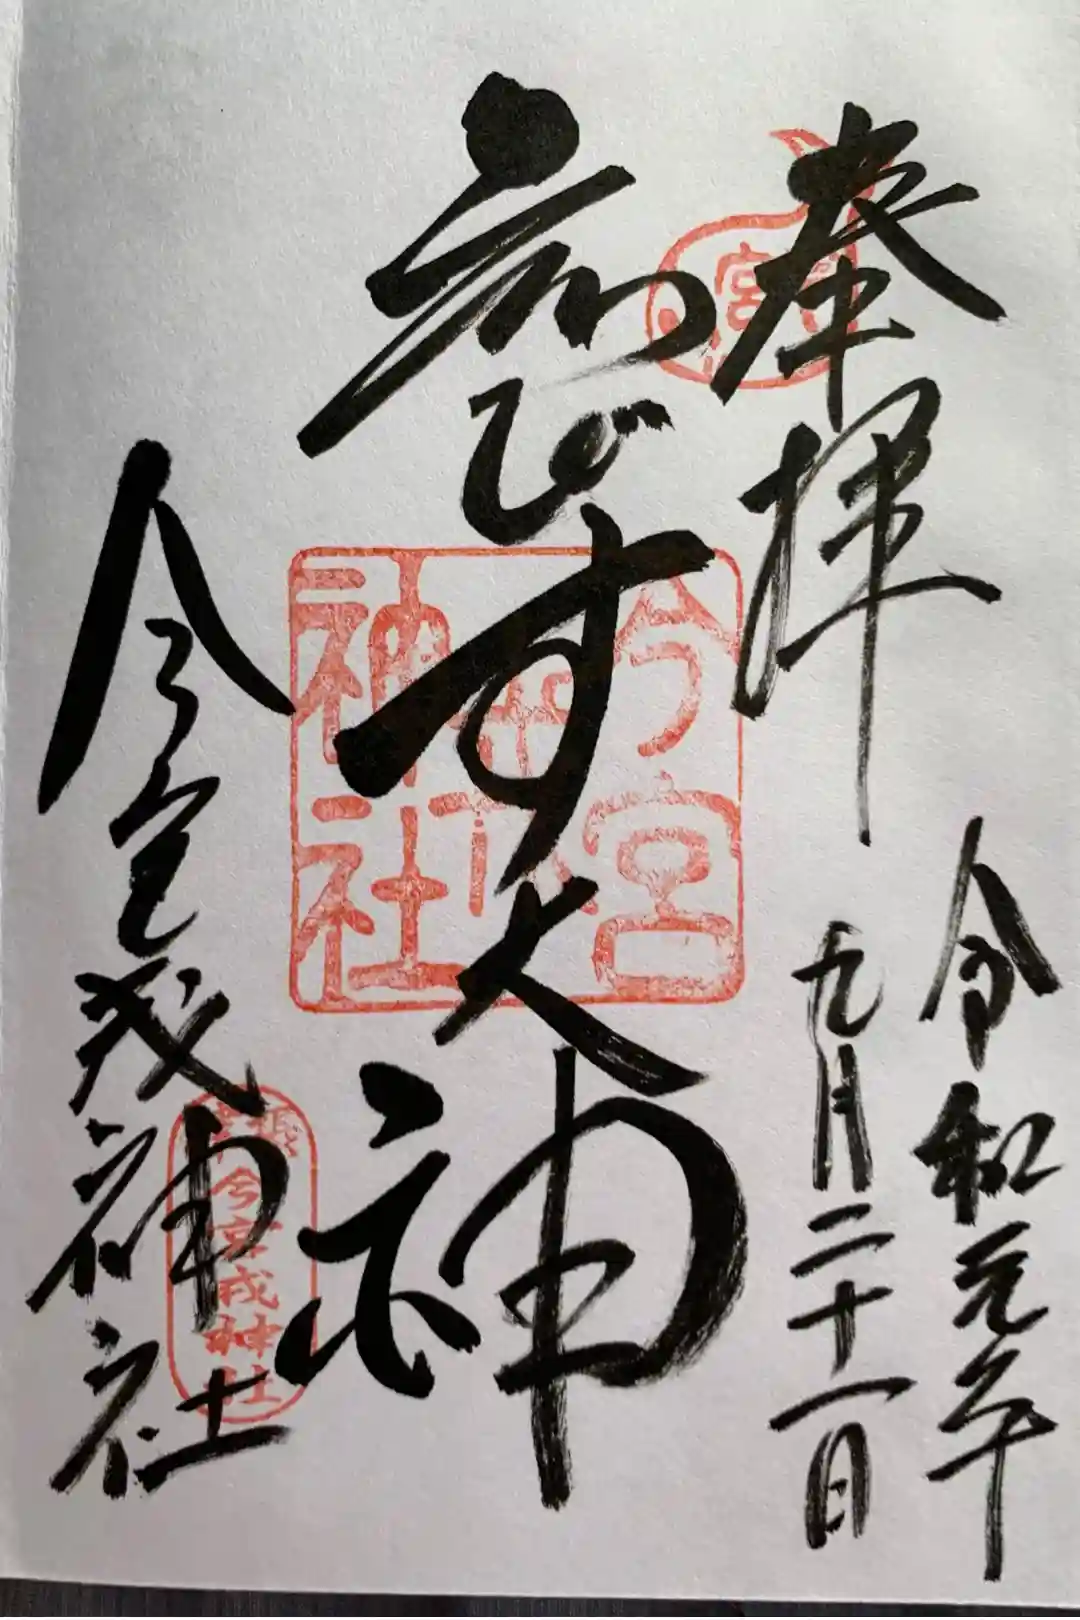 奉拝
令和元年
九月二十一日
ゑびす大神
今宮戎神社
宮
今宮
戎
神社
今宮戎神社